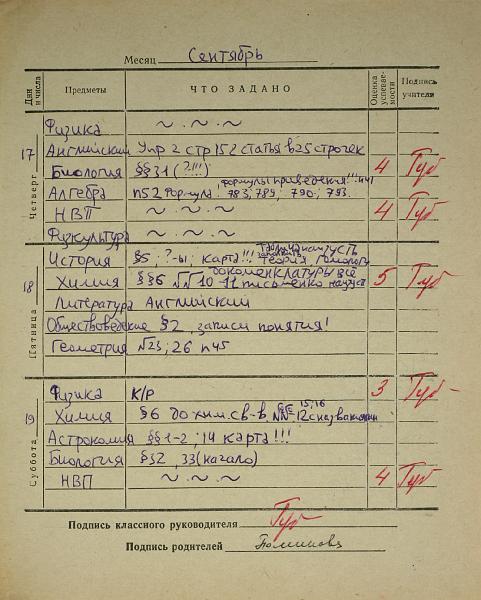 Месяц Сентябрь
Дни и числа Предметы ЧТО ЗАДАНО Оценка успевае- мости Подпись учителя
17 Четверг
Физика ~ . ~ . ~
Английский Упр 2 стр 152 статья в 25 строчек
Биология §§31 (?!!!) 4 Губ
формулы приведения!!!
Алгебра п52 Формула 783, 789, 790, 793.
НВП ~ . ~ . ~ 4 Губ
Физкультура ~ . ~ . ~
18 Пятница
История §5; ?-ы; карта!!!
Химия §§6 №№10 11 письменно 5 Губ
Литература Английский
Обществоведение §2, записи понятия!
Геометрия №23; 26 п45
19 Суббота
Физика К/Р 3 Губ
15; 16
Химия §6 до хим. св-в,
Астрономия §§1-2; 14 карта!!!
Биология §32, 33 (начало)
НВП ~ . ~ . ~ 4 Губ
Подпись классного руководителя Губ
Подпись родителей